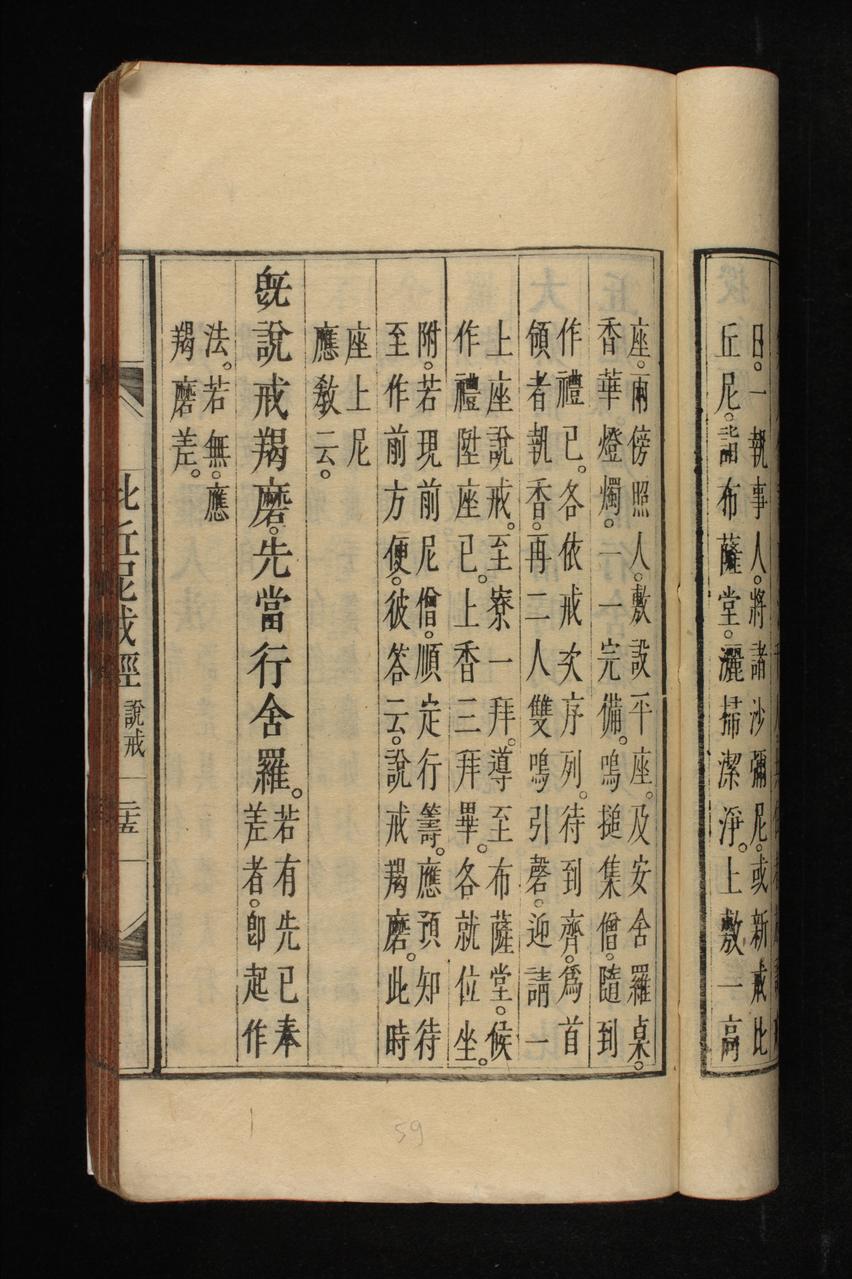 日。一執事人。將諸沙彌尼。或新戒比
丘尼。詣布薩堂。灑掃潔淨。上敷一高
座。兩傍照人。敷設平座。及安舍羅桌。
香華燈燭。一一完備。鳴搥集僧。隨到
作禮已。各依戒次序列。待到齊。爲首
領者執香。再二人雙鳴引磬。迎請一
上座說戒。至寮一拜。導至布薩堂。候
作禮陞座已。上香三拜畢。各就位坐。
附。若現前尼僧。順定行籌。應預知待
至作前方便。彼答云。說戒羯磨。此時
座上尼
應教云。
旣說戒羯磨。先當行舍羅。
若有先已奉
差者。卽起作
法。若無。應
羯磨差。
比丘尼戒經
說戒
二十五
59